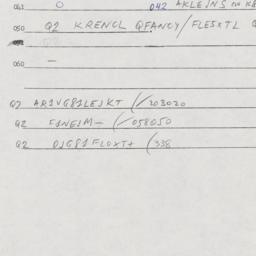 041 0 042 AKLEJNS
050 Q2 KRENCL QFANCY/FLESXTL Q
060 —
Q2 AR1VG81LEJKT (/203020
Q2 F1NEJM— (/058050
Q2 DJG81FLOXT+ (338